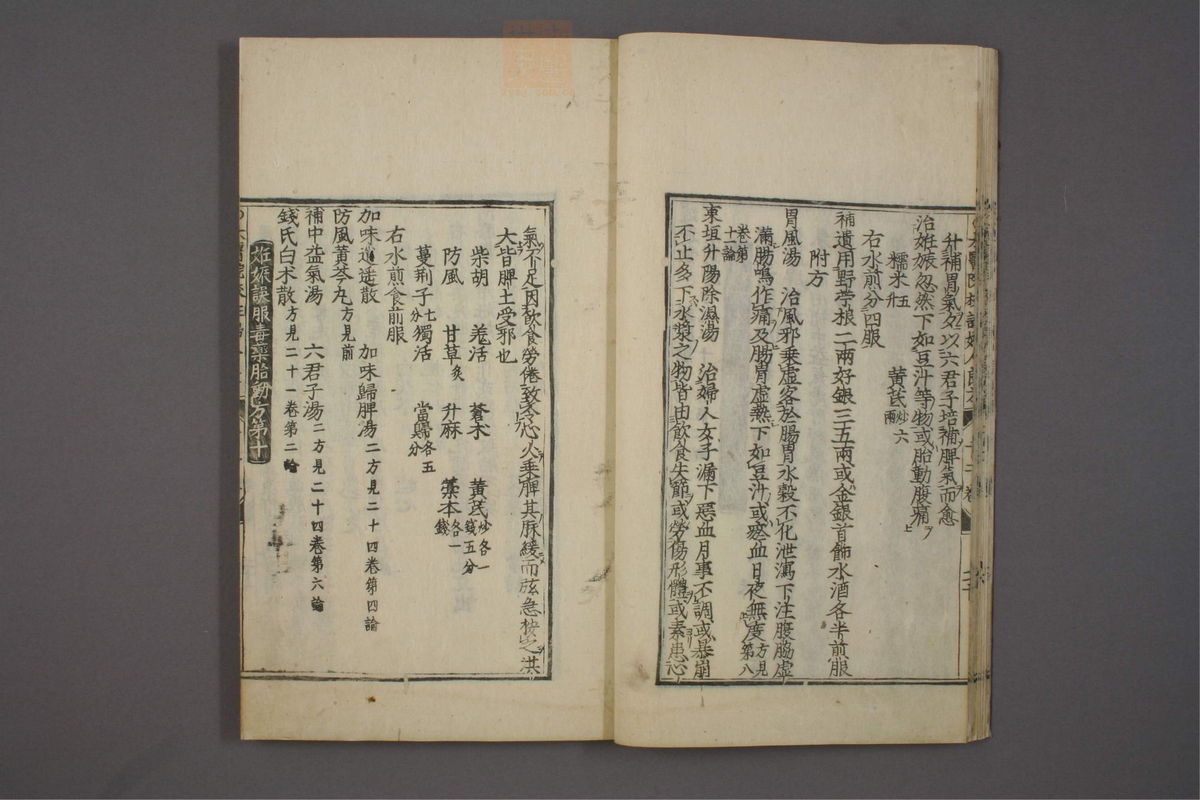 升補胃氣又以六君子培補脾氣而愈
治姙娠忽然下如豆汁等物或胎動腹痛
糯米五升 黃芪炒六兩
右水煎分四服
補遺用野苧根二兩好銀三五兩或金銀首飾水酒各半煎服
附方
胃風湯 治風邪乗虛客於腸胃水穀不化泄瀉下注腹脇虛
滿腸鳴作痛及腸胃虛熱下如豆汁或瘀血日夜無度方見第八卷第十一論
東垣升陽除濕湯 治婦人女子漏下惡血月事不調或暴崩
不止多下水漿之物皆由飲食失節或勞傷形體或素患心
氣不足因飲食勞倦致令心火乗脾其脉緩而弦急按之洪
大皆脾土受邪也
柴胡 羗活 蒼朮 黃芪炒各一錢五分
防風 甘草炙 升麻 藁本各一錢
蔓荆子七分 獨活 當歸各五分
右水煎食前服
加味逍遥散 加味歸脾湯二方見二十四卷第四論
防風黃芩丸方見前
補中益氣湯 六君子湯二方見二十四卷第六論
錢氏白朮散方見二十一卷第二論
姙娠誤服毒藥胎動方第十